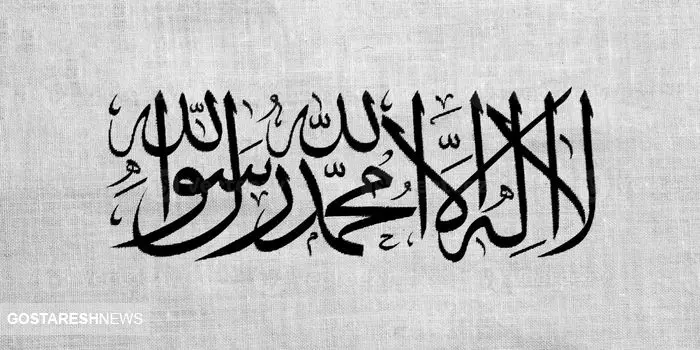 لا إله إلا الله محمد رسول الله
GOSTARESHNEWS